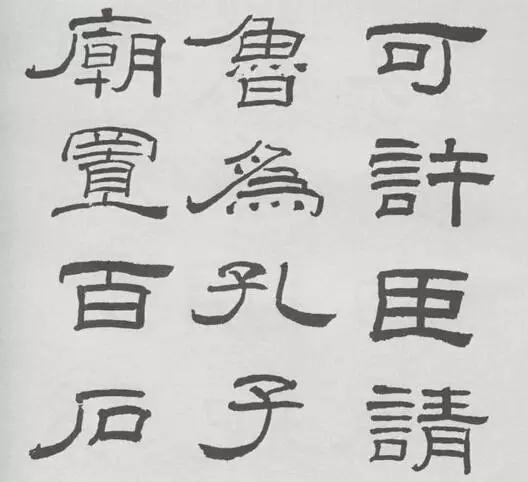 可許臣請
魯爲孔子
廟置百石